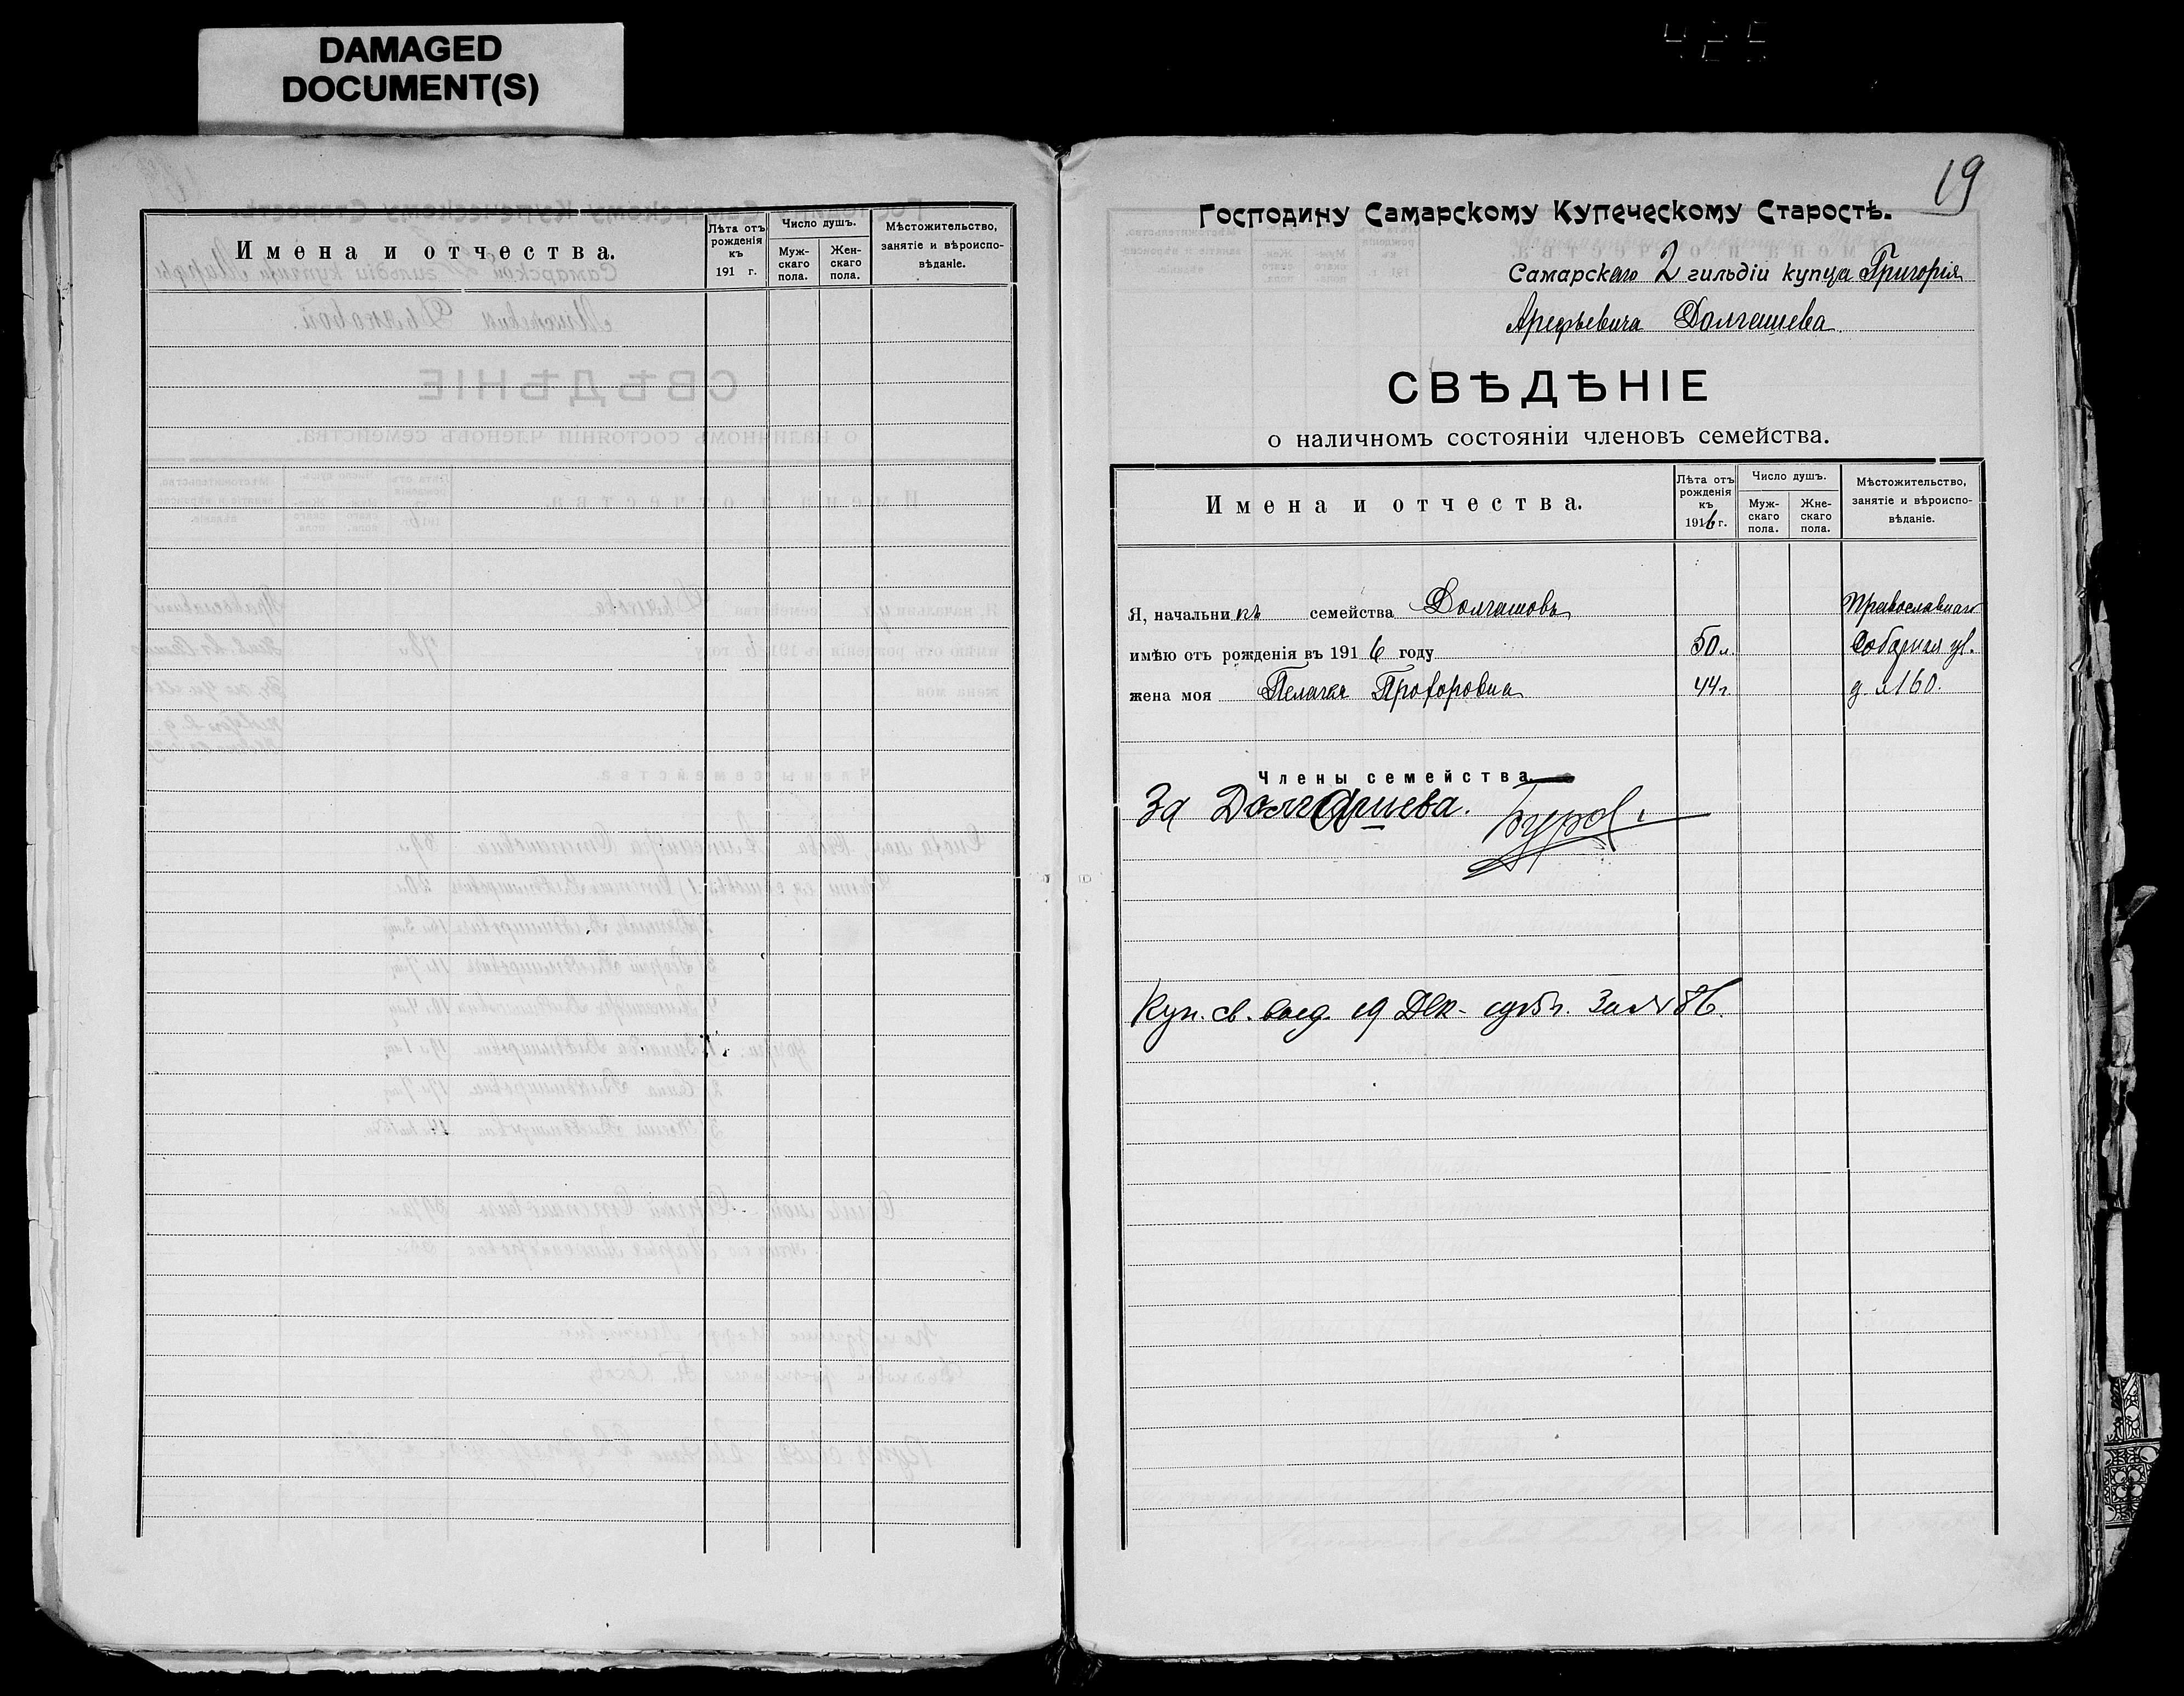 DAMAGED
DOCUMENT(S)
Имена и отчества.
Лѣта отъ рожденія къ 191 г.
Число душъ.
Муж-скаго пола.
Жен-скаго пола.
Мѣстожительство, занятіе и вѣроиспо-вѣданіе.
19
Господину Самарскому Купеческому Старостѣ.
Самарскаго 2 гильдіи купца Григорія
Арефьевича Долгашева
СВѢДѢНІЕ
о наличномъ состояніи членовъ семейства.
Имена и отчества.
Лѣта отъ рожденія къ 1916 г.
Число душъ.
Муж-скаго пола.
Жне-скаго пола.
Мѣстожительство, занятіе и вѣроиспо-вѣданіе.
Я, начальникъ семейства Долгашовъ Православнаго
имѣю отъ рожденія въ 1916 году 50 л. Соборная ул.
жена моя Пелагея Прохоровна 44 г. д. №160.
Члены семейства.
За Долгашева.
Куп. св. выд. 19 Дек. за № 86